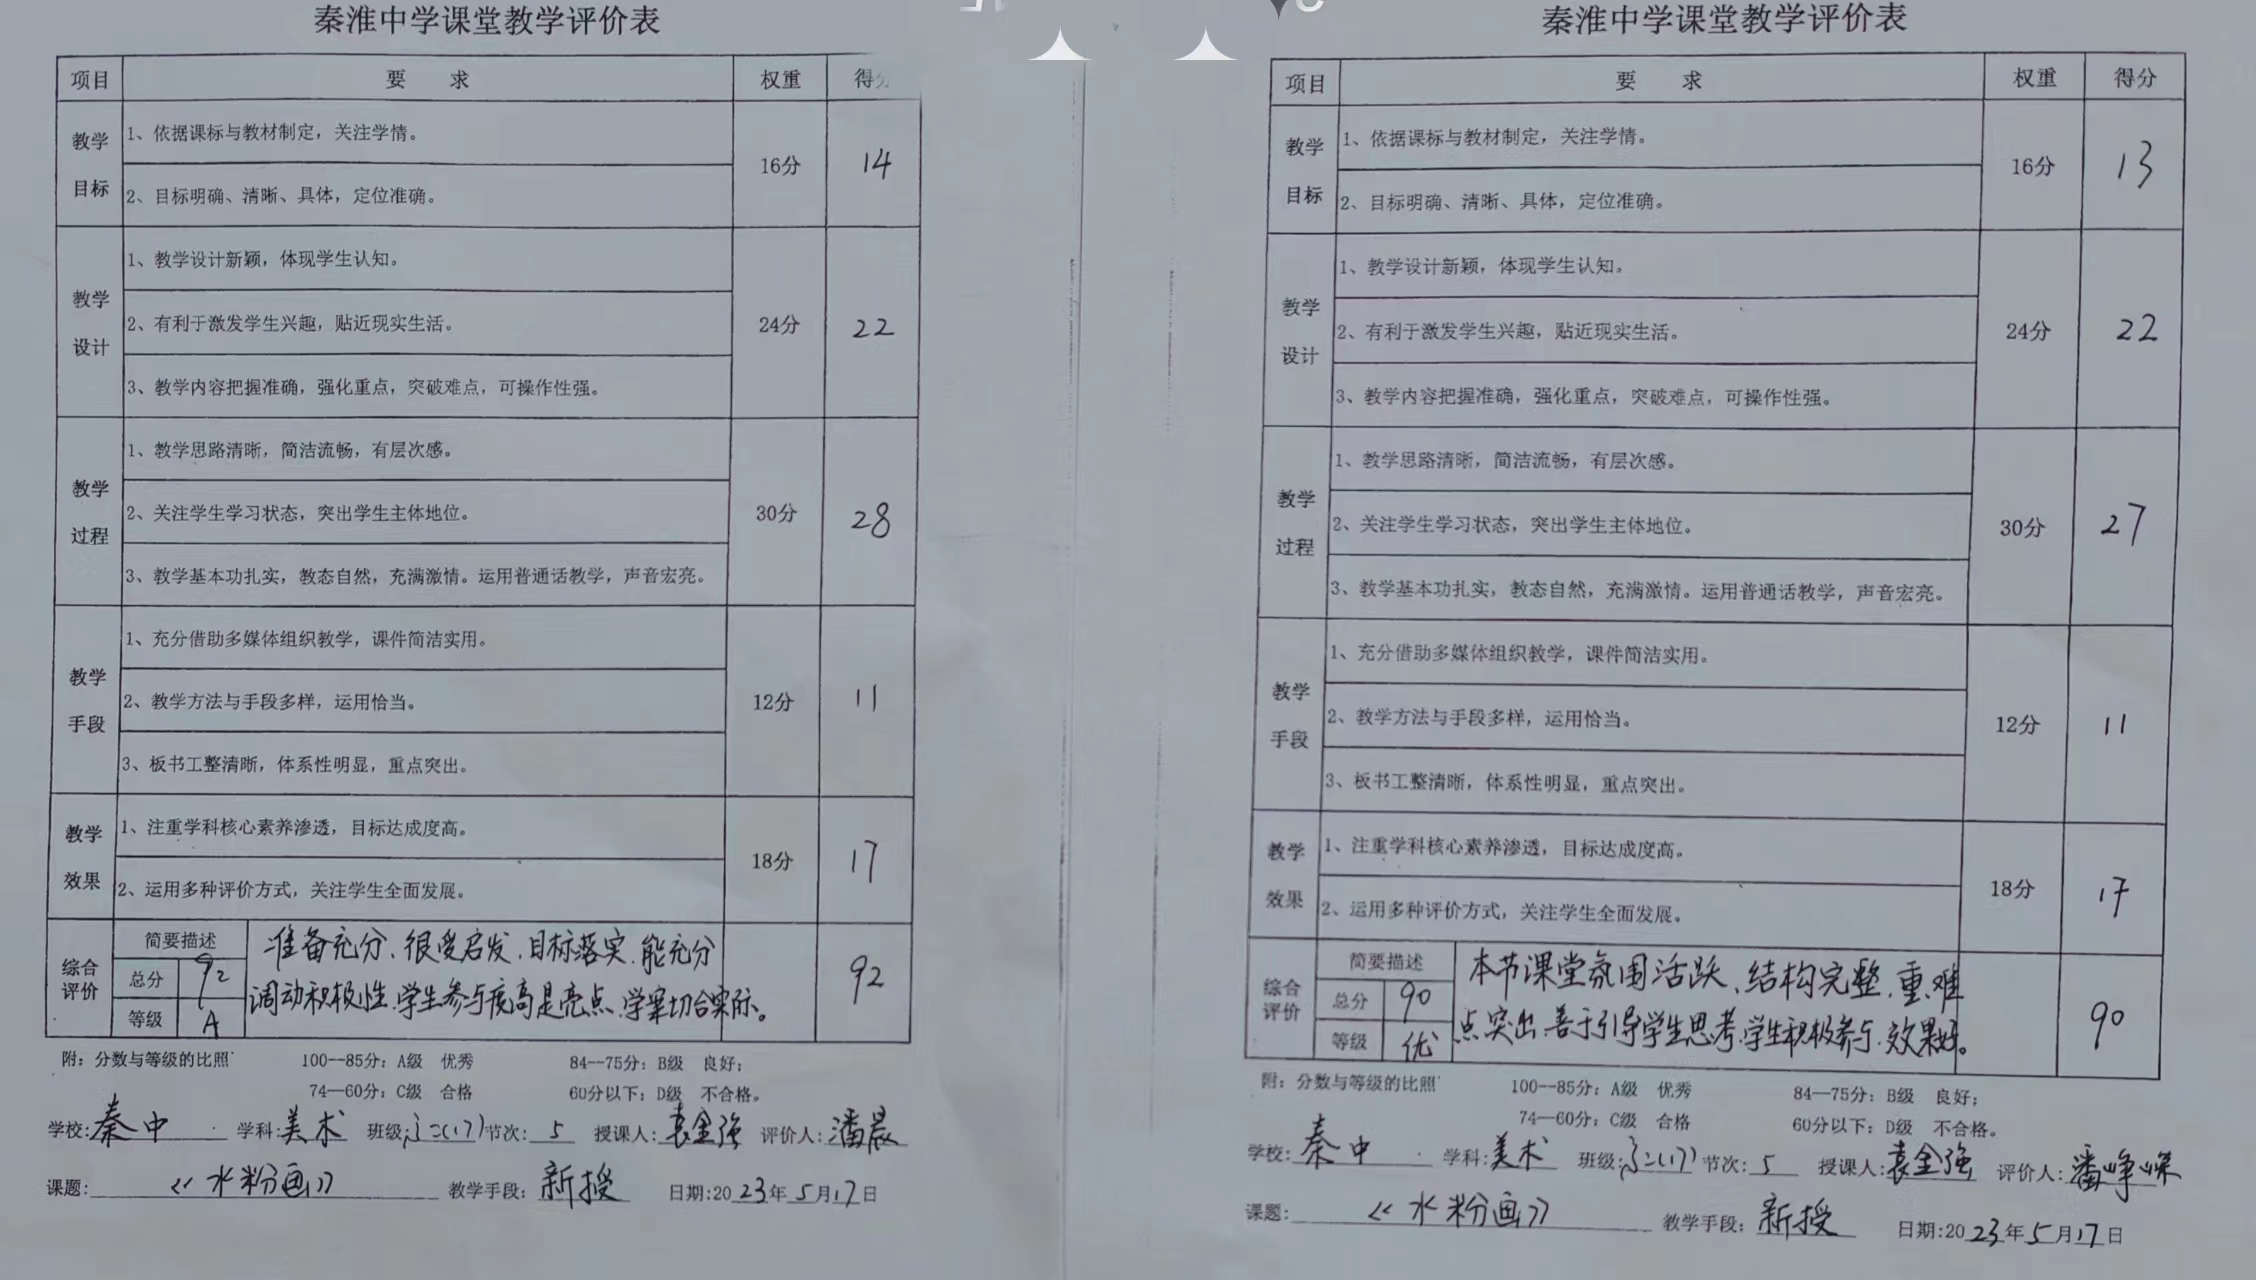 秦淮中学课堂教学评价表
项目 要 求 权重 得分
教学目标 1、依据课标与教材制定，关注学情。 16分 14
2、目标明确、清晰、具体，定位准确。
教学设计 1、教学设计新颖，体现学生认知。 24分 22
2、有利于激发学生兴趣，贴近现实生活。
3、教学内容把握准确，强化重点，突破难点，可操作性强。
教学过程 1、教学思路清晰，简洁流畅，有层次感。 30分 28
2、关注学生学习状态，突出学生主体地位。
3、教学基本功扎实，教态自然，充满激情。运用普通话教学，声音宏亮。
教学手段 1、充分借助多媒体组织教学，课件简洁实用。 12分 11
2、教学方法与手段多样，运用恰当。
3、板书工整清晰，体系性明显，重点突出。
教学效果 1、注重学科核心素养渗透，目标达成度高。 18分 17
2、运用多种评价方式，关注学生全面发展。
综合评价 简要描述 准备充分、很受启发、目标落实、能充分
总分 92 调动积极性、学生参与度高是亮点、学案切合实际。 92
等级 A
附：分数与等级的比照 100--85分：A级 优秀 84--75分：B级 良好；
74--60分：C级 合格 60分以下：D级 不合格。
学校：秦中 学科：美术 班级： 二(17) 节次：5 授课人：袁金强 评价人：潘晨
课题：《水粉画》 教学手段：新授 日期：2023年5月17日
秦淮中学课堂教学评价表
项目 要 求 权重 得分
教学目标 1、依据课标与教材制定，关注学情。 16分 13
2、目标明确、清晰、具体，定位准确。
教学设计 1、教学设计新颖，体现学生认知。 24分 22
2、有利于激发学生兴趣，贴近现实生活。
3、教学内容把握准确，强化重点，突破难点，可操作性强。
教学过程 1、教学思路清晰，简洁流畅，有层次感。 30分 27
2、关注学生学习状态，突出学生主体地位。
3、教学基本功扎实，教态自然，充满激情。运用普通话教学，声音宏亮。
教学手段 1、充分借助多媒体组织教学，课件简洁实用。 12分 11
2、教学方法与手段多样，运用恰当。
3、板书工整清晰，体系性明显，重点突出。
教学效果 1、注重学科核心素养渗透，目标达成度高。 18分 17
2、运用多种评价方式，关注学生全面发展。
综合评价 简要描述 本节课堂氛围活跃、结构完整、重、难
总分 90 点突出、善于引导学生思考、学生积极参与、效果好。 90
等级 优
附：分数与等级的比照 100--85分：A级 优秀 84--75分：B级 良好；
74--60分：C级 合格 60分以下：D级 不合格。
学校：秦中 学科：美术 班级： 二(17) 节次：5 授课人：袁金强 评价人：潘峥嵘
课题：《水粉画》 教学手段：新授 日期：2023年5月17日